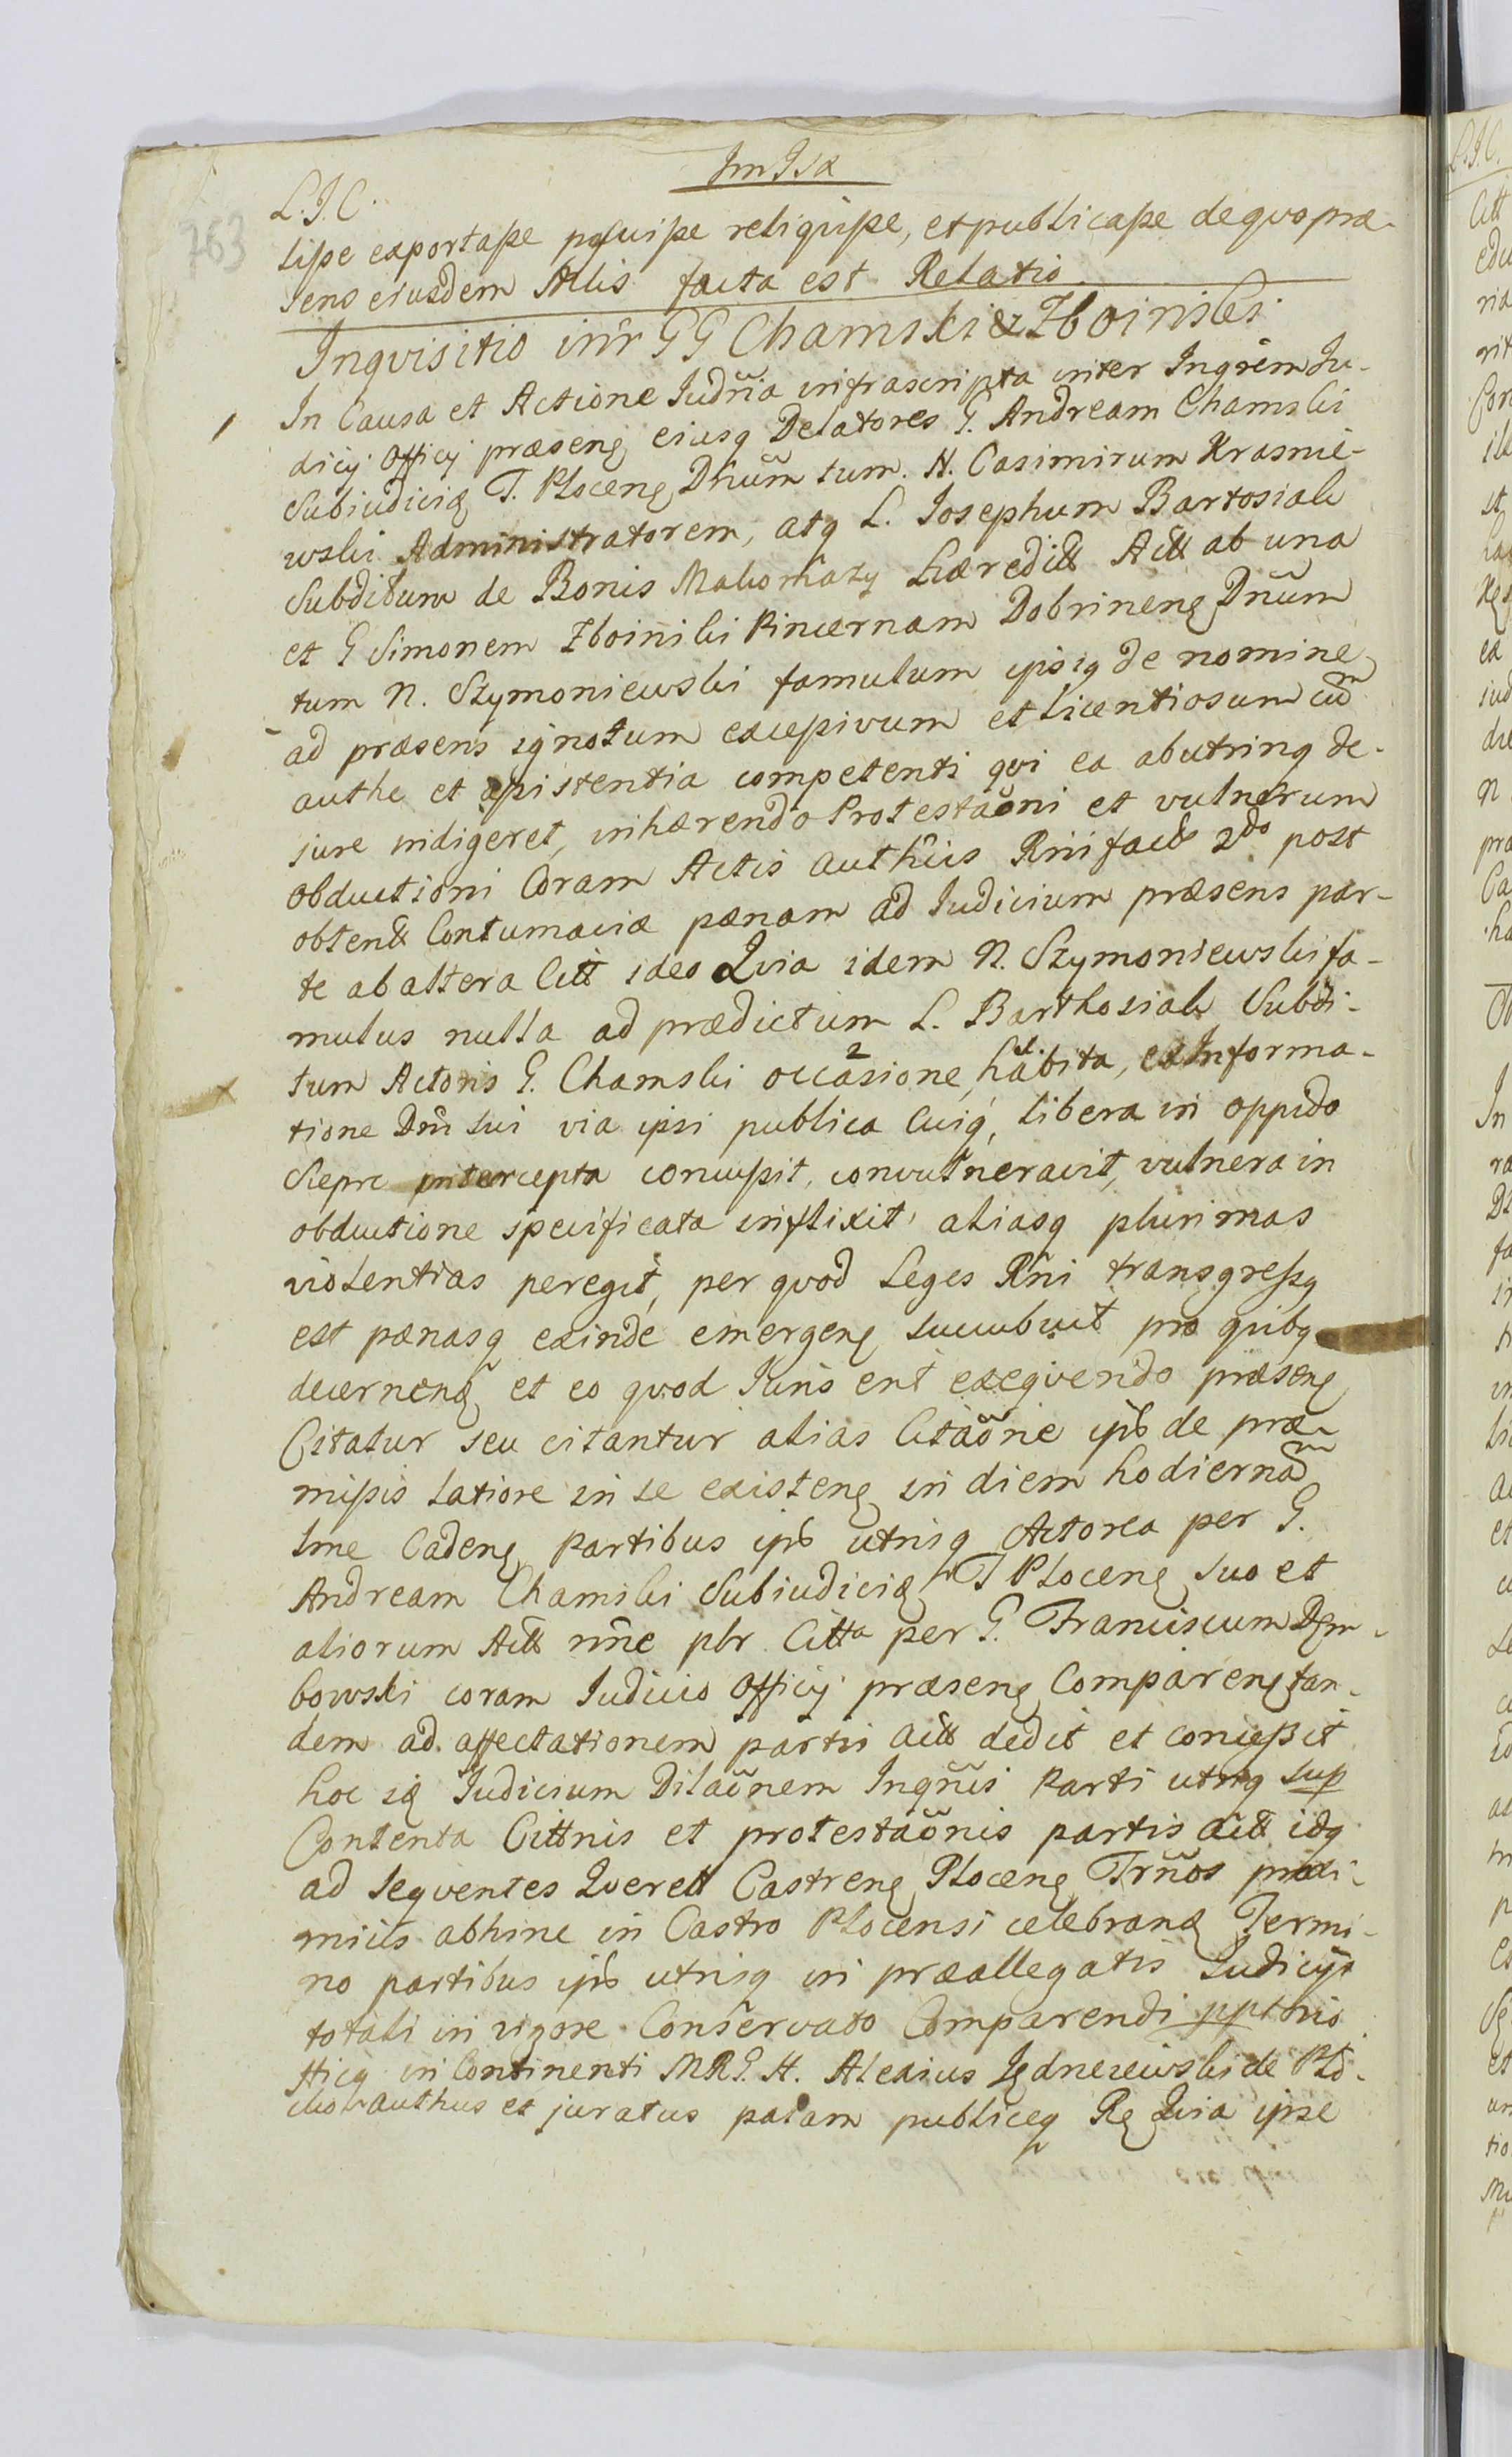 ImJsa
L.J.C.
753
lisse exportasse posuisse reliquisse, et publicasse de quo præ-
sens eiusdem Mlis facta est Relatio
Inqvisitio intr GG Chamski & Zboinski
In Causa et Actione Iudria infrascripta inter Ingrem Iu-
dicij Officij præsens eiusq Delatores G. Andream Chamski
Subiudicis T. Plocens Dnum tum. N. Casimirum Krasnie-
wski Administratorem, atq L. Iosephum Bartosiak
Subditum de Bonis Makomazy hæredit Act ab una
et G Simonem Zboinski Pincernam Dobrinens Dnum
tum N. Szymoniewski famulum ipsiq de nomine
ad præsens ignotum excessivum et licentiosum cum
authe et assistentia competenti qvi ea abutrinq de-
jure indigeret, inhærendo Protestaoni et vulnerum
obductioni Coram Actis authcis Rni fact 2do post
obtent Contumaciæ pænam ad Iudicium præsens par-
te ab altera Citt ideo Qvia idem N. Szymoniewski fa-
mulus nulla ad prædictum L. Barthosiak Subdi-
tum Actoris G. Chamski occasione, habita, ex Informa-
tione Dni sui via ipsi publica Cuiq, libera in oppido
Sieprc intercepta concussit, convulneravit, vulnera in
obductione specificata inflixit, aliasq plurimas
violentias peregit, per qvod Leges Rni transgressq
est pænasq exinde emergens succubuit pro quibq
decernens et eo qvod Iuris erit exeqvendo præsens
Citatur seu citantur alias Citaone ipsos de præ-
missis latiore in se existens in diem hodiernam
sme Cadens Partibus ipsis utrisq Actorea per G.
Andream Chamski Subiudicis T Plocens suo et
aliorum Act nne plr Citta per G. Franciscum Dem-
bowski coram Iudicio Officij præsens Comparens tan-
dem ad affectationem partis Citt dedit et concessit
hoc iq Iudicium Dilaonem Inqnis Parti utriq sup
Contenta Cittnis et protestaonis partis Citt idq
ad seqventes Qverell Castrens Plocens Trnos proxi-
miùs abhinc in Castro Plocensi celebrans Termi-
no partibus ipsis utrisq in præallegatis Iudicijs
totali in vigore Conservato Comparendi
Hicq in Continenti MRG. H. Alexius Jędrzeiewski de Plo-
cko authus et juratus palam publiceq Rec Qvia ipse